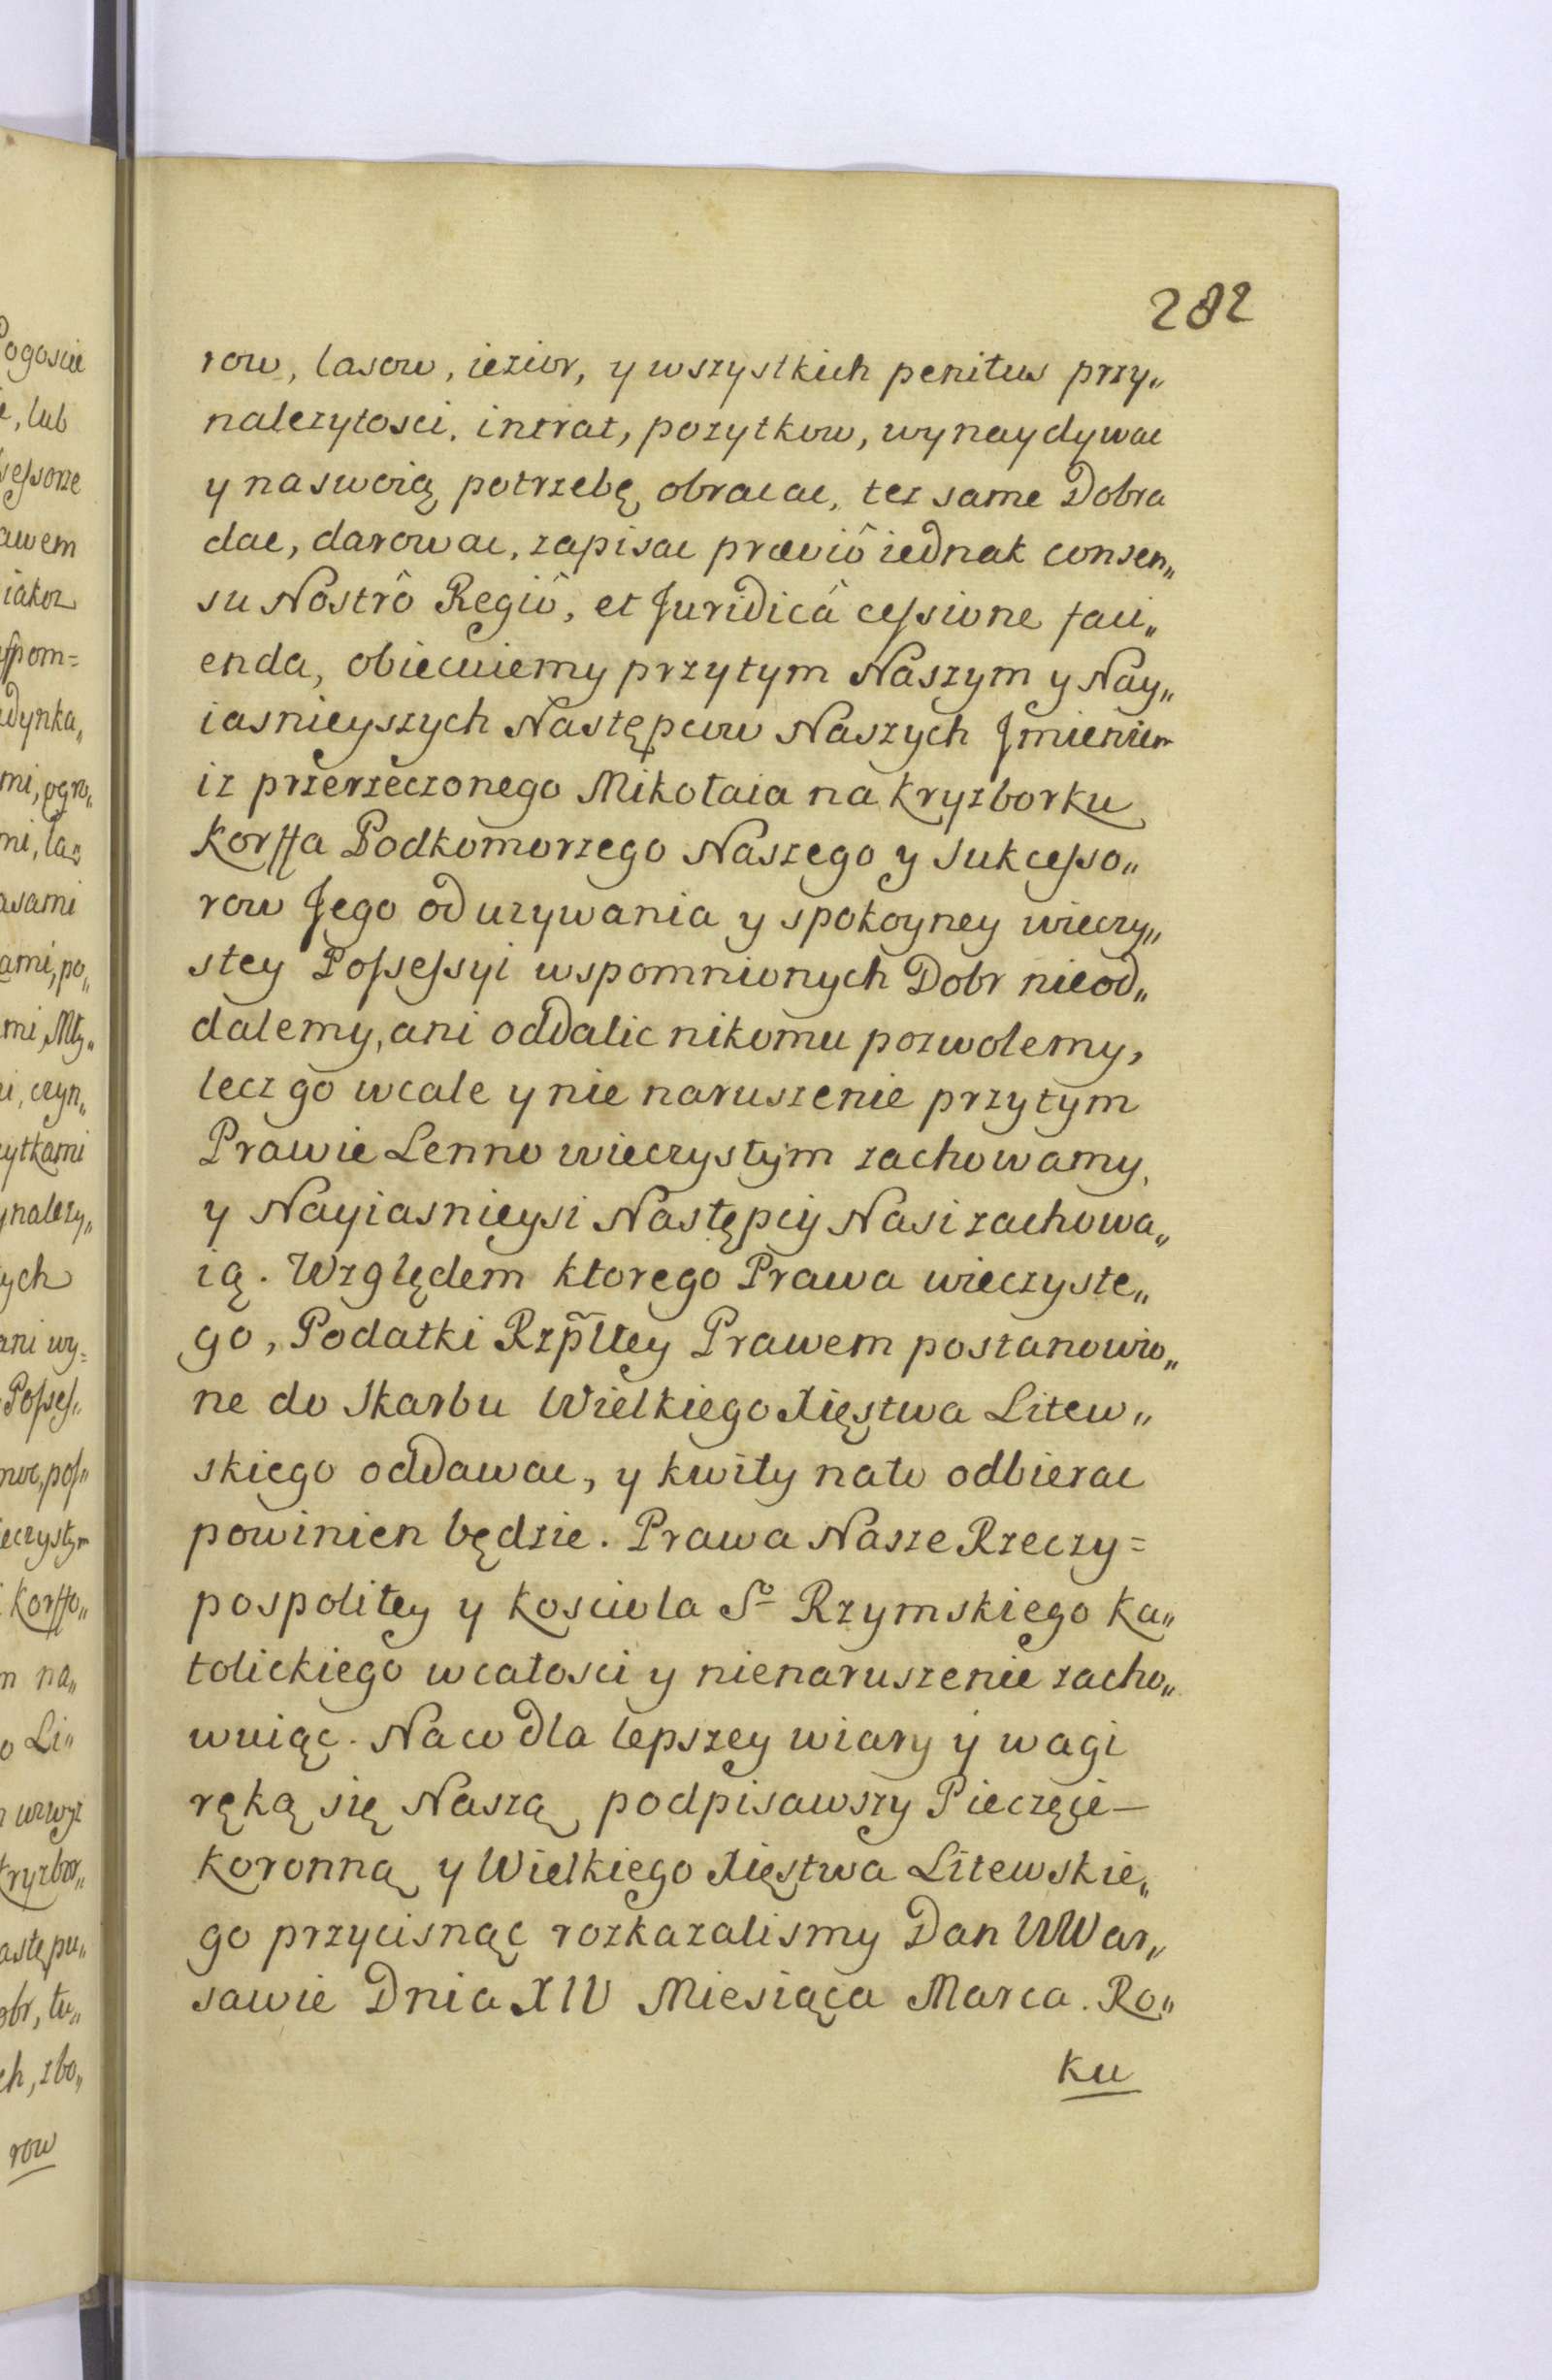 282
row, lasow, iezior, y wszystkich penitus przy„
nalezytosci, intrat, pozytkow, wynaydywac
y na swoią potrzebę obracac, tez same Dobra
dac, darowac, zapisac præviô iednak consen„
su Nostrô Regiô, et Juridicâ cessione faci„
enda, obiecuiemy przytym Naszym y Nay„
iasnieyszych Następcow Naszych Jmieniem
iz przerzeczonego Mikołaia na Kryzborku
Korffa Podkomorzego Naszego y Sukcesso„
row Jego od uzywania y spokoyney wieczy„
stey Possessyi wspomnionych Dobr nieod„
dalemy, ani oddalic nikomu pozwolemy,
lecz go wcale y nie naruszenie przytym
Prawie Lenno wieczystym zachowamy,
y Nayiasnieysi Następcy Nasi zachowa„
ią. Względem ktorego Prawa wieczyste„
go, Podatki Rzp̃ltey Prawem postanowio„
ne do Skarbu Wielkiego Xięstwa Litew„
skiego oddawac, y kwity nato odbierac
powinien będzie. Prawa Nasze Rzeczy=
pospolitey y Kosciola Sº Rzymskiego Ka„
tolickiego wcałosci y nienaruszenie zacho„
wuiąc. Naco dla lepszey wiary ÿ wagi
ręką się Naszą podpisawszy Pieczęcie—
Koronną y Wielkiego Xięstwa Litewskie„
go przycisnąc rozkazalismy Dan WWar„
sawie Dnia XIV Miesiąca Marca. Ro„
ku
ogoscie
lub
awem
iakoz
adynka„
mi, ogro„
asami
ami, po„
mi, Mły„
i, czyn„
ytkami
ynalezy„
ych
ani wy=
Posses„
eczystym
Korffo„
na„
o Li„
kryzbor„
astępu„
obr, tu„
ch, zbo„
row